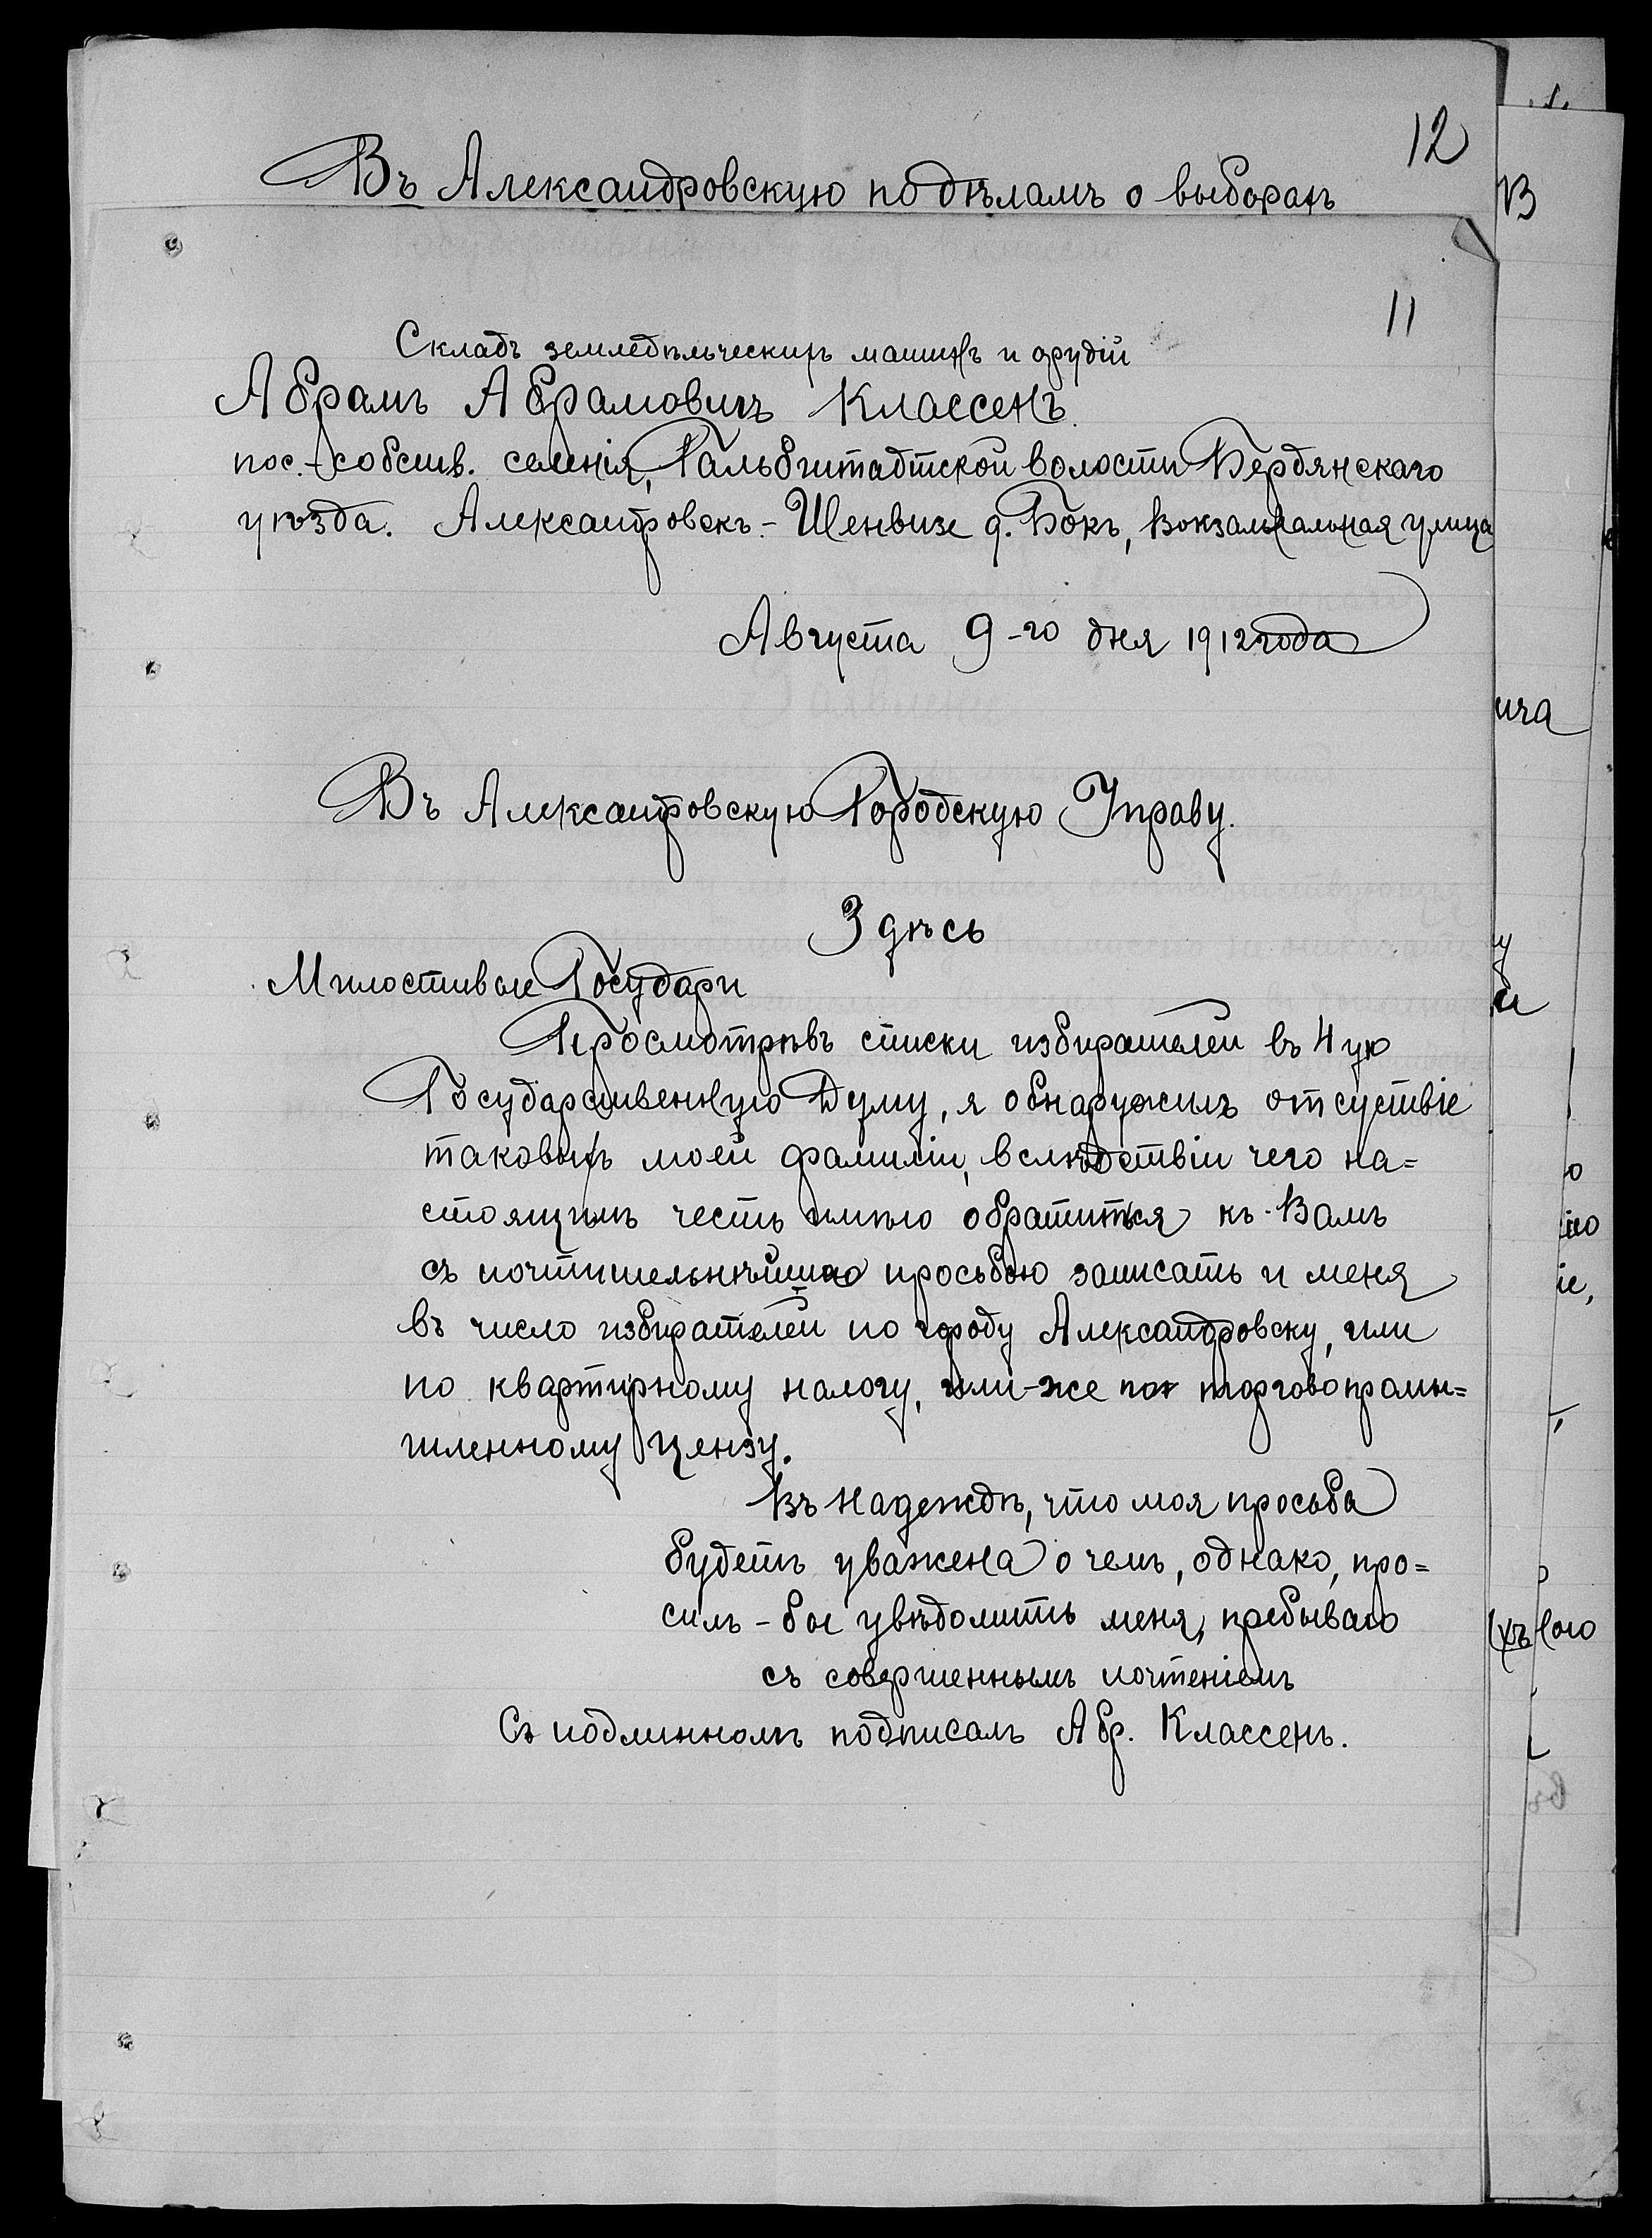 12
Въ Александровскую по дѣламъ о выборахъ
11
Складъ земледѣльческихъ машинъ и орудій
Абрамъ Абрамовичъ Классенъ
пос.-собств. селенія, Гальбштадтской волости Бердянскаго
уѣзда. Александровскъ-Шенвизе д. Бокъ, Вокзальная улица
Августа 9-го дня 1912 года
Въ Александровскую Городскую Управу.
Здѣсь
Милостивые Государи
Просмотрѣвъ списки избирателей въ 4ую
Государственную Думу, я обнаружилъ отсуствіе
таковыхъ моей фамиліи, вслѣдствіи чего на=
стоящимъ честь имѣю обратиться къ Вамъ
съ почтительнѣйшею просьбою записать и меня
въ число избирателей по городу Александровску, или
по квартирному налогу, или-же по торговопромы=
шленному цензу.
Въ надеждѣ, что моя просьба
будетъ уважена о чемъ, однако, про=
силъ-бы увѣдомить меня, пребываю
съ совершеннымъ почтеніемъ
Съ подлинномъ подписалъ Абр. Классенъ.